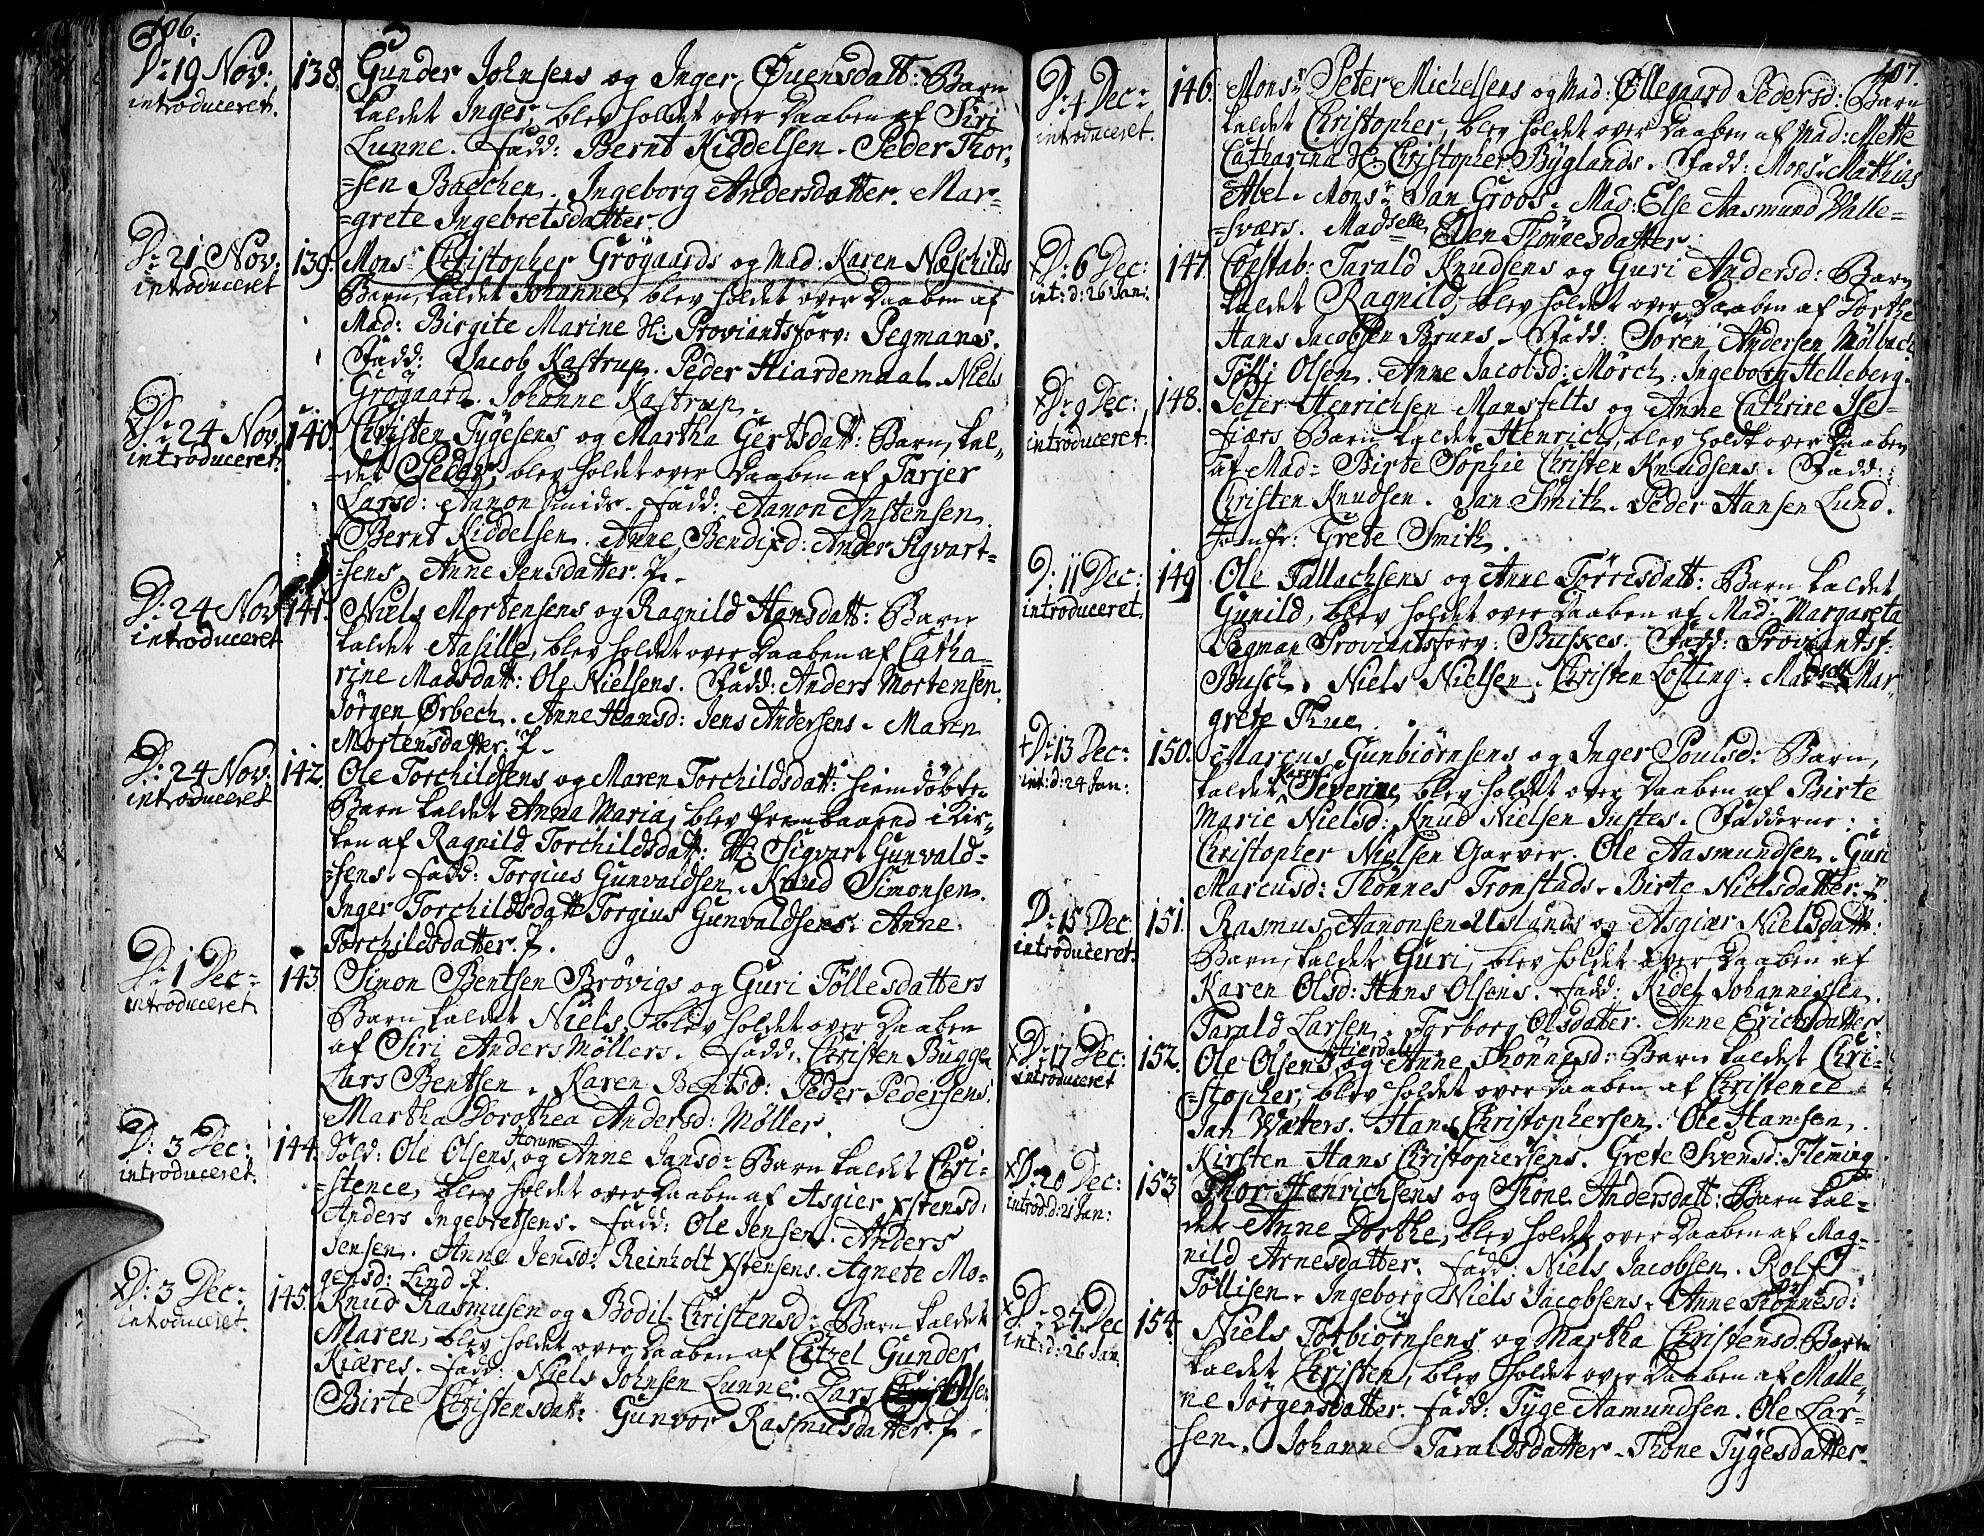 106.
D: 19 Nov:
introduceret.
138.
Gunder Johnsens og Inger Øuensdatt: Barn
kaldet Inger, blev holdet over Daaben af Siri
Lunne. Fadd: Bernt Kiddelsen. Peder Thor-
=sen Baechen. Ingeborg Andersdatter. Mar-
=grete Ingebretsdatter.
D: 21 Nov.
introduceret
139.
Mons: Christopher Grøgaards og Mad: Karen Næschilds
Barn, kaldet Johanne, blev holdet over Daaben af
Mad: Birgite Marine H: Proviantsforv: Pegmans.
Fadd: Jacob Kastrup. Peder Hiardemaal. Niels
Grøgaard. Johanne Kastrup.
D: 24 Nov.
introduceret.
140.
Christen Tygesens og Martha Gertsdatt: Barn, kal-
=det Peder, blev holdet over Daaben af Tarjer
Larsd: Aanon Smids. Fadd: Aanon Anstensen.
Bernt Kiddelsen. Anne Bendixd: Ander Sigvart-
=sens. Anne Jensdatter. f.
D: 24 Nov
introduceret
141.
Niels Mortensens og Ragnild Hansdatt: Barn
kaldet Aasille, blev holdet over Daaben af Catha-
rine Madsdatt: Ole Nielsens. Fadd: Anders Mortensen.
Jørgen Ørbech. Anne Hansd: Jens Andersens. Maren
Mortensdatter. f.
D: 24 Nov:
introduceret
142.
Ole Torchildsens og Maren Torchildsdatt: hiemdøbte
Barn kaldet Anna Maria, blev frembaared i Kir-
ken af Ragnild Torchildsdatt: H: Sigvart Gunvald-
=sens. Fadd: Torgius Gunvaldsen. Knud Simonsen.
Inger Torchildsdatt Torgius Gunvaldsens. Anne
Torchildsdatter. f.
D: 1 Dec:
introduceret
143.
Simon Bentsen Brøvigs og Guri Tøllesdatters
Barn kaldet Niels, blev holdet over Daaben
af Siri Anders Møllers. Fadd: Christen Bugge
Lars Bentsen. Karen Bentsd: Peder Pedersens.
Martha Dorothea Andersd: Møller.
D: 3 Dec:
introduceret.
144.
Sold: Ole Olsens Horum og Anne Jansd: Barn kaldet Chri-
=stence, blev holdet over Daaben af Asgier Xstensd:
Anders Ingebretsens. Fadd: Ole Jensen. Anders
Jensen. Anne Jensd: Reinholt Xstensens. Agnete Mo-
gensd: Lind. f.
xD: 3 Dec:
introduceret.
145.
Knud Rasmusen og Bodil Christensd: Barn kaldet
Maren, blev holdet over Daaben af Citzel Gunder
Kiæres. Fadd: Niels Johnsen Lunne. Lars Olsen
Birte Christensdatt: Gunvor Rasmusdatter. f.
107.
D: 4 Dec:
introduceret.
146.
Monsr: Peter Michelsens og Mad: Øllegaard Pedersd: Barn
kaldet Christopher, blev holdet over Daaben af Mad: Mette
Catharina H: Christopher Byglands. Fadd: Monsr Mathias
Abel. Monsr Jan Groos. Mad: Else Aasmund Valle-
=sværs. Madselle Ellen Thønnesdatter.
xD: 6 Dec:
int: d: 26 Jan:
147.
Constab: Tarald Knudsens og Guri Andersd: Barn
kaldet Ragnild, blev holdet over Daaben af Dorthe
Hans Jacobsen Bruns. Fadd: Søren Andersen Mølbach
Tølli Olsen. Anne Jacobsd: Mørch. Ingeborg Helleberg.
xD: 9 Dec:
introduceret.
148.
Peter Henrichsen Mansfelts og Anne Cathrine Ise-
fiærs Barn kaldet Henrich, blev holdt over Daaben
af Mad: Birte Sophie Christen Knudsens. Fadd:
Christen Knudsen. Jan Smith. Peder Hansen Lund.
Jomfr: Grete Smith.
D: 11 Dec:
introduceret.
149
Ole Tallachsens og Anne Tørrisdatt: Barn kaldet
Gunild, blev holdet over Daaben af Mad: Margareta
Pegman Proviantsforv: Buskes. Fadd: Proviantsf:
Busch. Niels Nielsen. Christen Løsting. Madselle Mar-
grete Thue.
+D: 13 Dec:
int: d: 24 Jan:
150.
Marcus Gunbiørnsens og Inger Poulsd: Barn,
kaldet Karen Severine, blev holdet over Daaben af Birte
Marie Nielsd: Knud Nielsen Justes. Fadderne:
Christopher Nielsen Garver. Ole Aasmundsen. Guri
Marcusd: Thønnes Tronstads. Birte Nielsdatter. f.
D: 15 Dec
introduceret.
151.
Rasmus Aanonsen Uslands og Asgiær Nielsdatt:
Barn, kaldet Guri, blev holdet over Daaben af
Karen Olsd: Hans Olsens. Fadd: Kidel Johannissen.
Tarald Larsen. Torborg Olsdatter. Anne Erichsdatter.
xD: 17 Dec:
introduceret
152.
Ole Olsens Stierdals og Anne Thønnesd: Barn kaldet Chri-
=stopher, blev holdet over Daaben af Christence
Jan Watters. Hans Christophersen. Ole Hansen.
Kirsten Hans Christophersens. Grete Svensd: Fleming
xD: 20 Dec:
introd: d: 21 Jan:
153.
Thor Henrichsens og Thone Andersdatt: Barn kal-
det Anne Dorthe, blev holdet over Daaben af Mag-
nild Arnesdatter. Fadd: Niels Jacobsen. Rolf
Tøllisen. Ingeborg Niels Jacobsens. Anne Thønnesd:
xD: 27 Dec
int: d: 26 Jan.
154.
Niels Torbiørnsens og Martha Christensd: Barn
kaldet Christen, blev holdet over Daaben af Malle-
ne Jørgensdatter. Fadd: Tyge Aamundsen. Ole Lar-
sen. Johanne Taraldsdatter. Thone Tygesdatter.